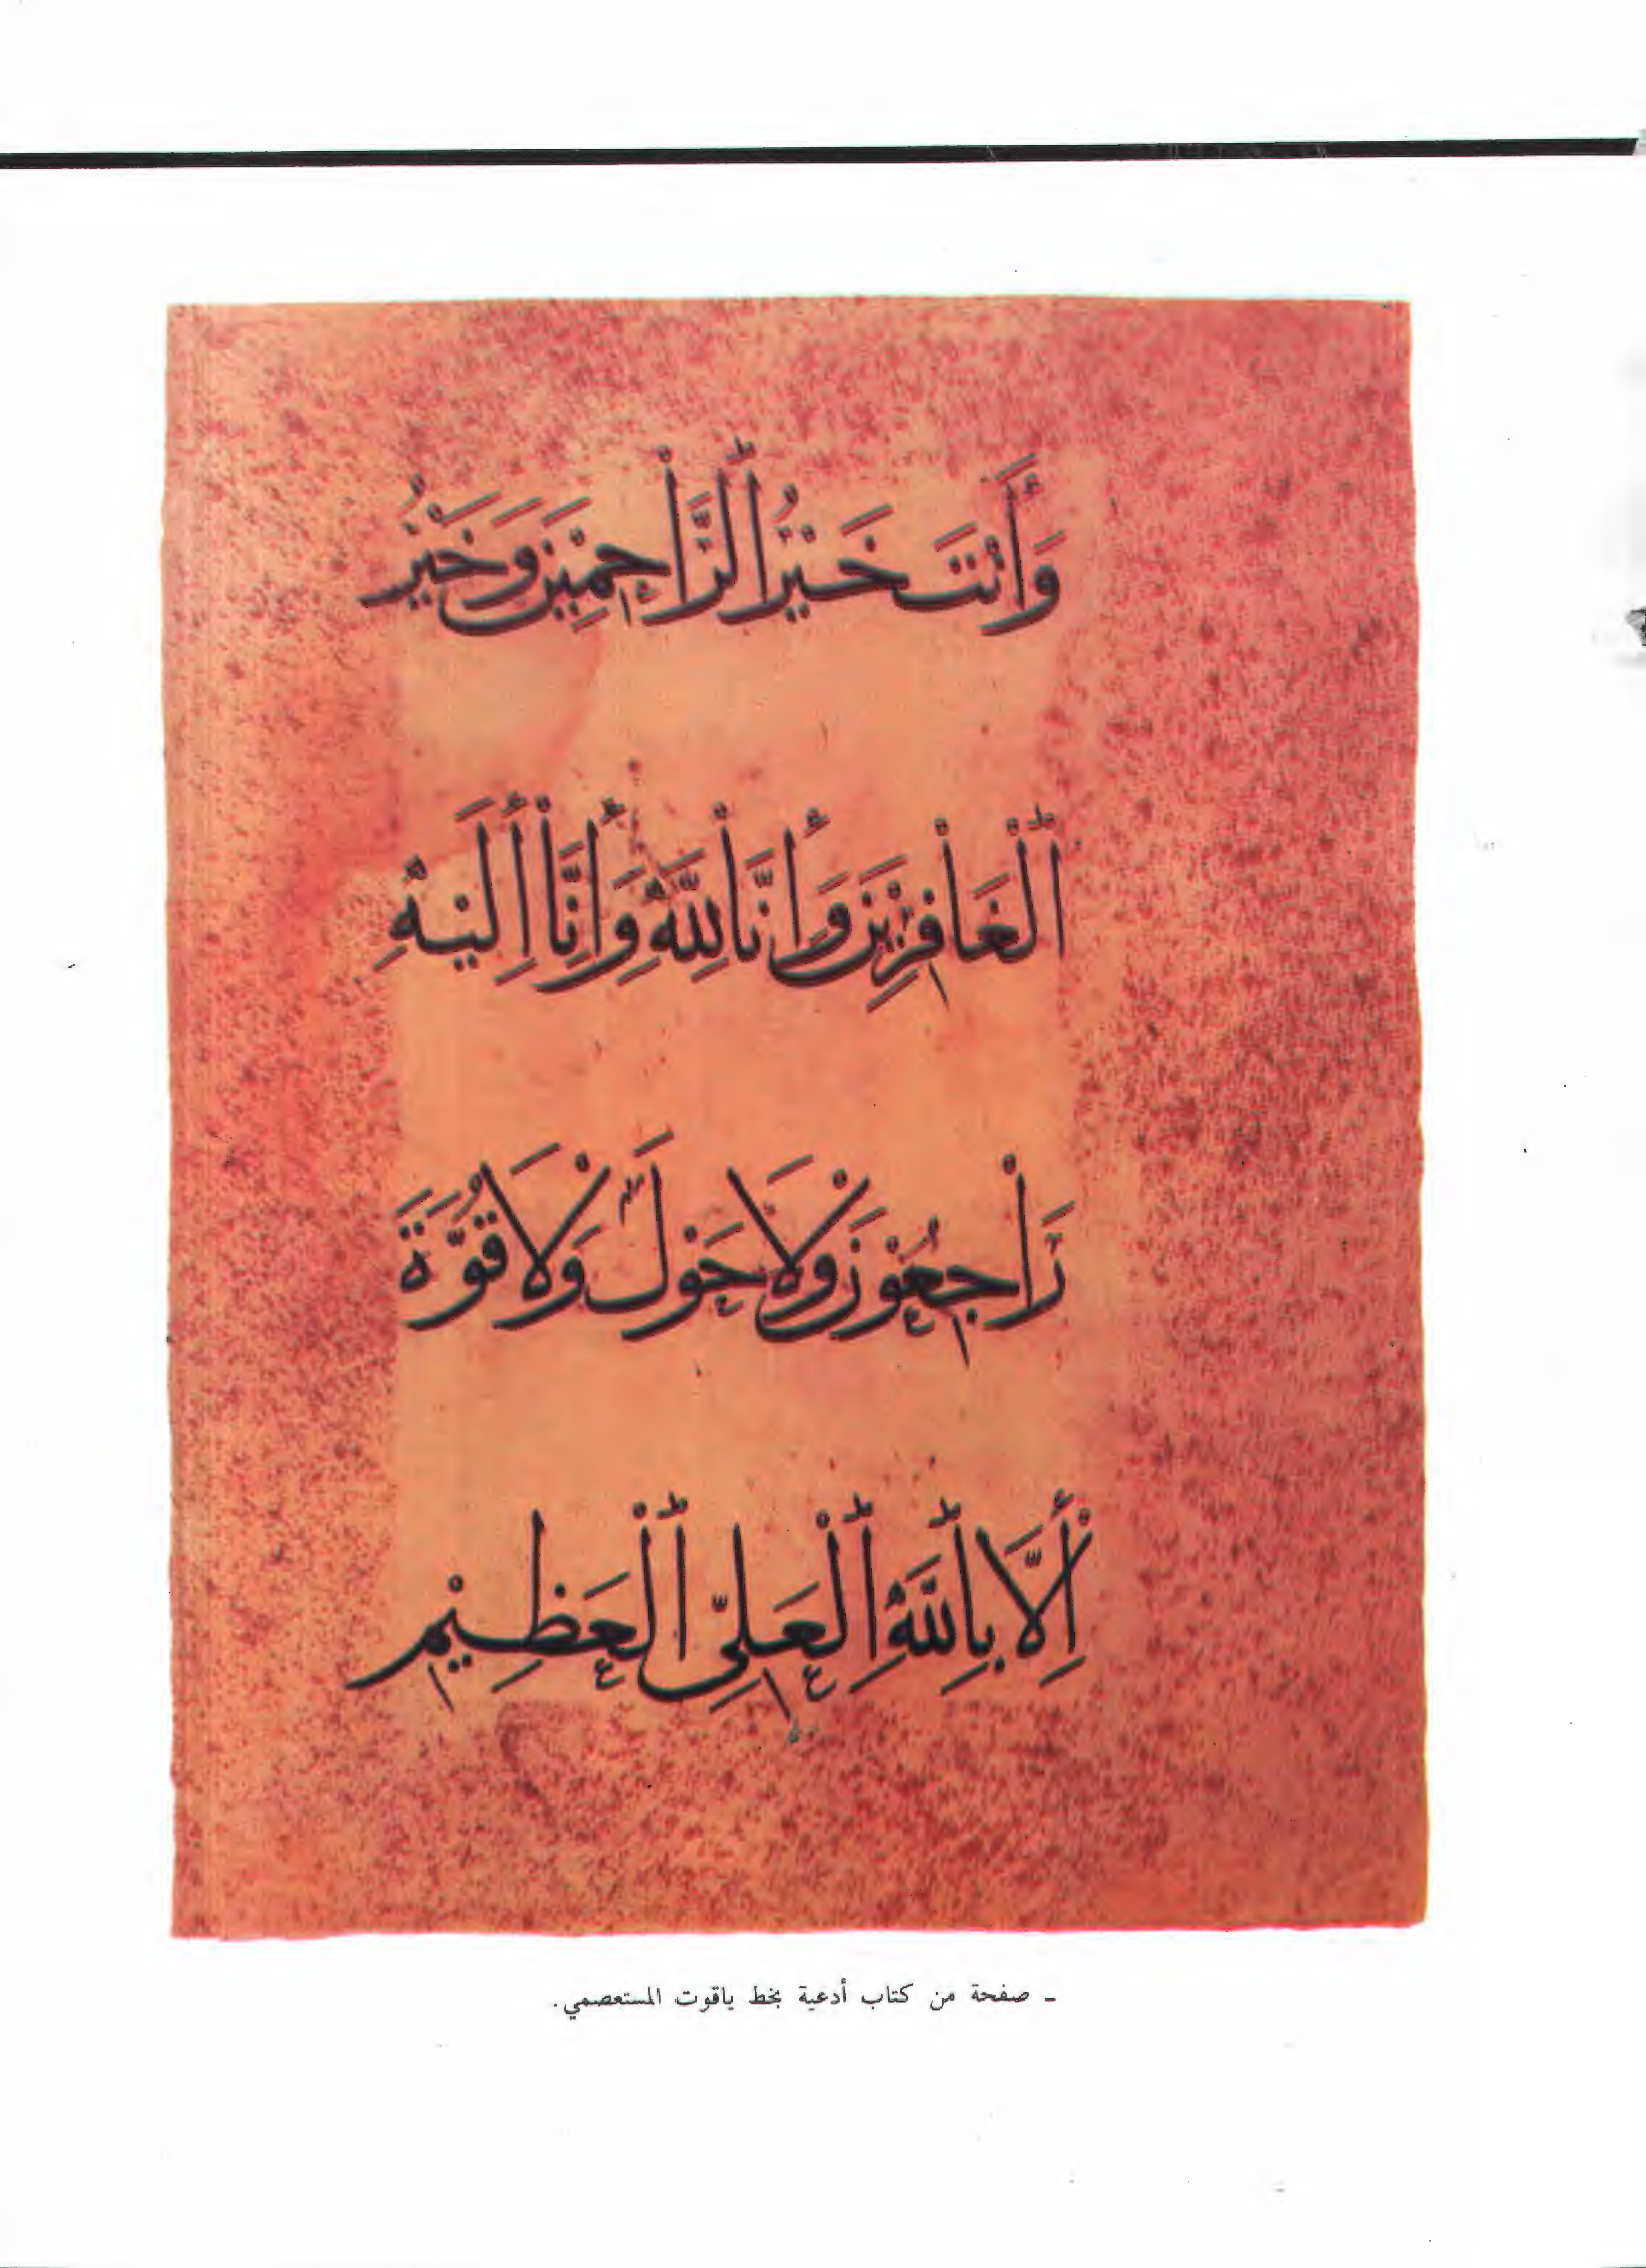 وَأَنْتَ خَيْرُ ٱلرَّاحِمِيْنَ وَخَيْرُ
ٱلْغَافِرِيْنَ وَإِنَّا لِلَّهِ وَإِنَّا إِلَيْهِ
رَاجِعُوْنَ وَلَا حَوْلَ وَلَا قُوَّةَ
إِلَّا بِٱللَّهِ ٱلْعَلِيِّ ٱلْعَظِيْمِ
ـ صفحة من كتاب أدعية بخط ياقوت المستعصمي.